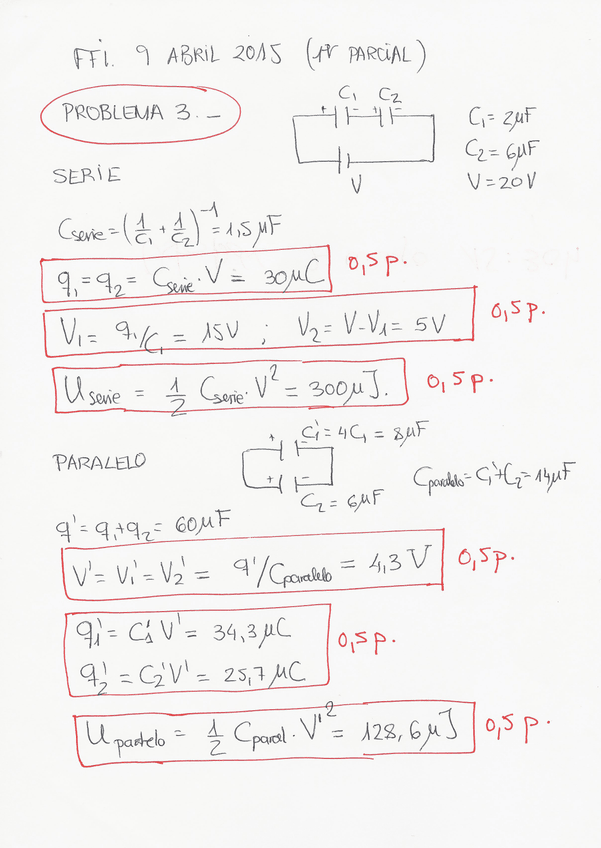 FFI. 9 ABRIL 2015 (1er PARCIAL)
PROBLEMA 3.-
C₁ C₂
+ - + -
V
C₁ = 2μF
C₂ = 6μF
V = 20V
SERIE
Cserie = (1/C₁ + 1/C₂)⁻¹ = 1,5μF
q₁ = q₂ = Cserie · V = 30μC 0,5 p.
V₁ = q₁/C₁ = 15V ; V₂ = V-V₁ = 5V 0,5 p.
Userie = 1/2 Cserie · V² = 300μJ. 0,5 p.
PARALELO
+ - C₁' = 4C₁ = 8μF
+ - C₂ = 6μF
Cparalelo = C₁' + C₂ = 14μF
q' = q₁ + q₂ = 60μF
V' = V₁' = V₂' = q'/Cparalelo = 4,3 V 0,5 p.
q₁' = C₁' V' = 34,3 μC
q₂' = C₂' V' = 25,7 μC 0,5 p.
Uparalelo = 1/2 Cparal · V'² = 128,6 μJ 0,5 p.